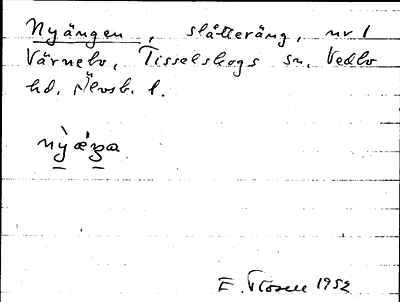 Nyängen, slåtteräng, nr 1
Värnebo, Tisselskogs sn, Vedbo
hd. Älvsb. l.
nỳæ̀ŋa
E. Rosell 1952